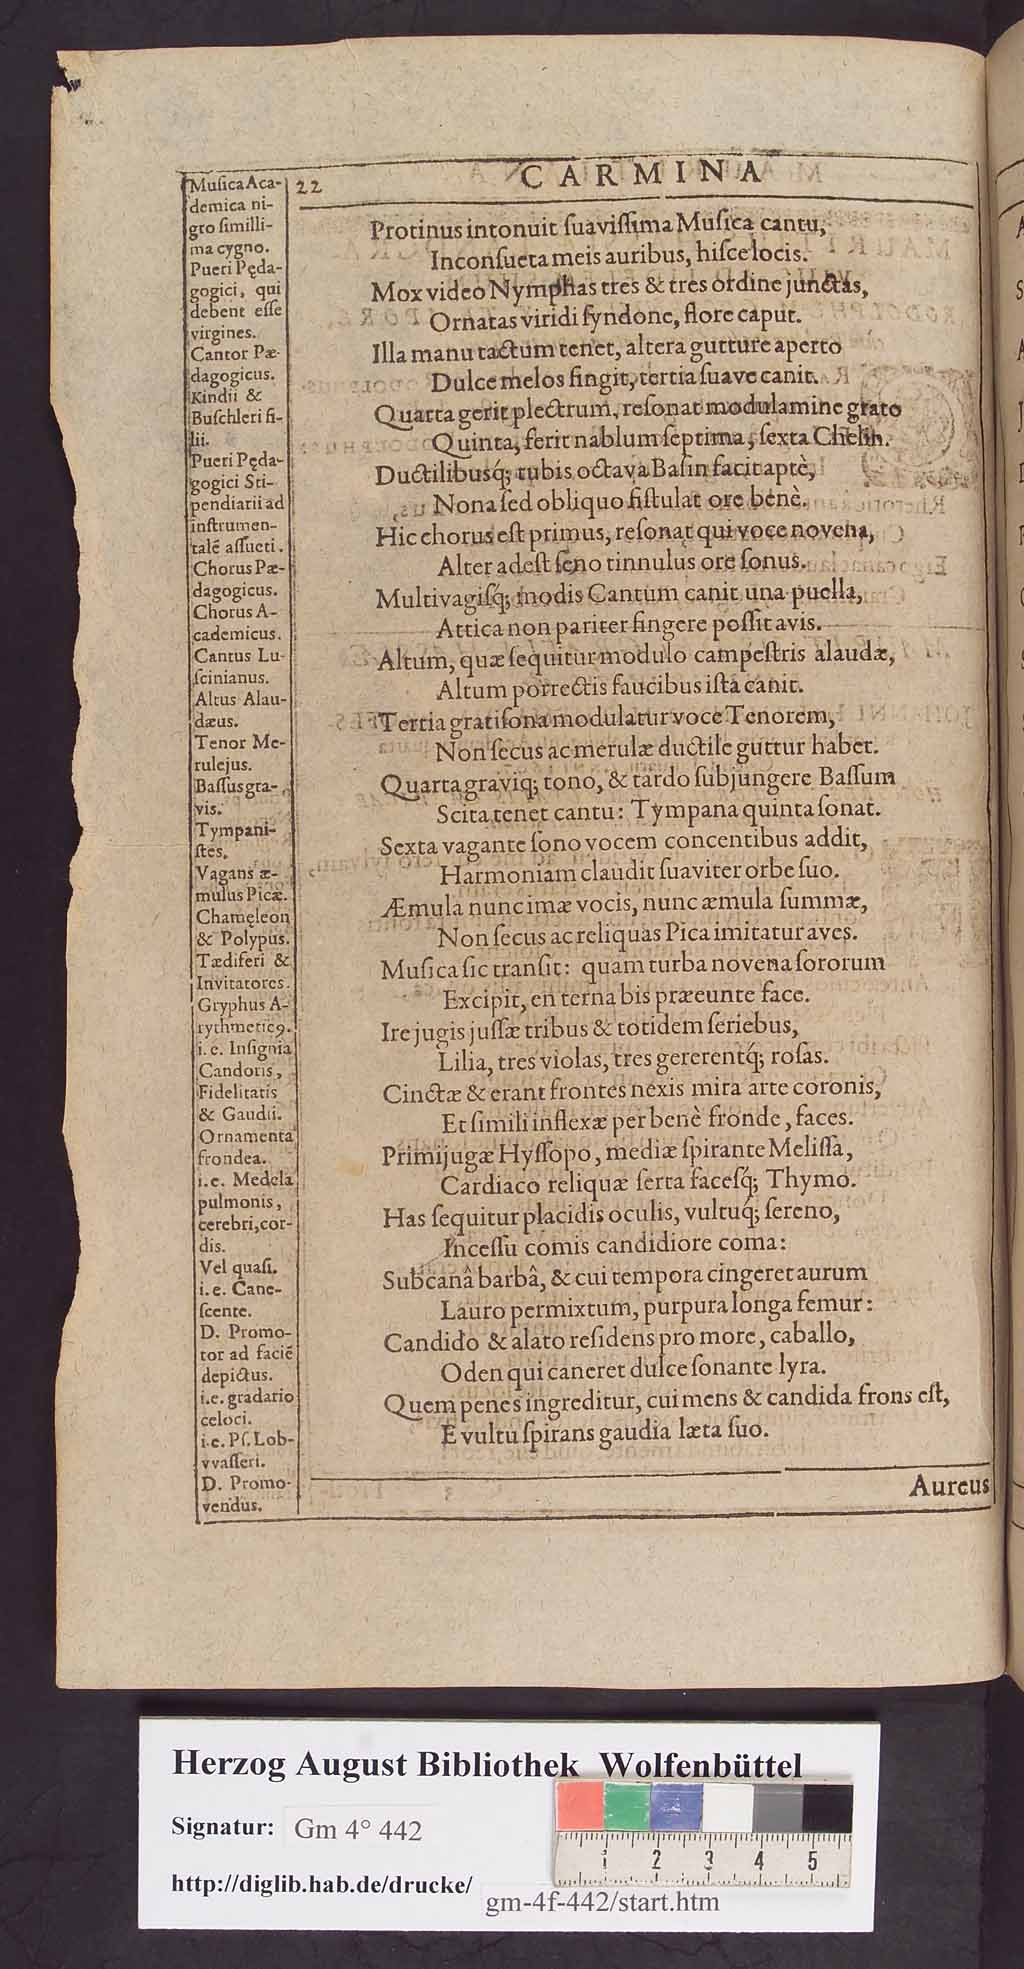 22
CARMINA
Protinus intonuit ſuaviſſima Muſica cantu,
Inconſueta meis auribus, hiſce locis.
Mox video Nymphas tres & tres ordine junctas,
Ornatas viridi ſyndone, flore caput.
Illa manu tactum tenet, altera gutture aperto
Dulce melos fingit, tertia ſuave canit.
Quarta gerit plectrum, reſonat modulamine grato
Quinta, ferit nablum ſeptima, ſexta Chelin.
Ductilibusq́; tubis octava Baſin facit aptè,
Nona ſed obliquo fiſtulat ore benè.
Hic chorus eſt primus, reſonat qui voce novena,
Alter adeſt ſeno tinnulus ore ſonus.
Multivagiſq́; modis Cantum canit una puella,
Attica non pariter fingere poſſit avis.
Altum, quæ ſequitur modulo campeſtris alaudæ,
Altum porrectis faucibus iſta canit.
Tertia gratiſona modulatur voce Tenorem,
Non ſecus ac merulæ ductile guttur habet.
Quarta graviq́; tono, & tardo ſubjungere Baſſum
Scita tenet cantu: Tympana quinta ſonat.
Sexta vagante ſono vocem concentibus addit,
Harmoniam claudit ſuaviter orbe ſuo.
Æmula nunc imæ vocis, nunc æmula ſummæ,
Non ſecus ac reliquas Pica imitatur aves.
Muſica ſic tranſit: quam turba novena ſororum
Excipit, en terna bis præeunte face.
Ire jugis juſſæ tribus & totidem ſeriebus,
Lilia, tres violas, tres gererentq́; roſas.
Cinctæ & erant frontes nexis mira arte coronis,
Et ſimili inflexæ per benè fronde, faces.
Primijugæ Hyſſopo, mediæ ſpirante Meliſſa,
Cardiaco reliquæ ſerta faceſq́; Thymo.
Has ſequitur placidis oculis, vultuq́; ſereno,
Inceſſu comis candidiore coma:
Subcanâ barbâ, & cui tempora cingeret aurum
Lauro permixtum, purpura longa femur:
Candido & alato reſidens pro more, caballo,
Oden qui caneret dulce ſonante lyra.
Quem penes ingreditur, cui mens & candida frons eſt,
E vultu ſpirans gaudia læta ſuo.
Aureus
Muſica Aca-
demica ni-
gro ſimilli-
ma cygno.
Pueri Pęda-
gogici, qui
debent eſſe
virgines.
Cantor Pæ-
dagogicus.
Kindii &
Buſchleri fi-
lii.
Pueri Pęda-
gogici Sti-
pendiarii ad
inſtrumen-
talē aſſueti.
Chorus Pæ-
dagogicus.
Chorus A-
cademicus.
Cantus Lu-
ſcinianus.
Altus Alau-
dæus.
Tenor Me-
rulejus.
Baſſus gra-
vis.
Tympani-
ſtes.
Vagans æ-
mulus Picæ.
Chamęleon
& Polypus.
Tædiferi &
Invitatores.
Gryphus A-
rythmetic9.
i.e. Inſignia
Candoris,
Fidelitatis
& Gaudii.
Ornamenta
frondea.
i.e. Medela
pulmonis,
cerebri, cor-
dis.
Vel quaſi.
i.e. Cane-
ſcente.
D. Promo-
tor ad faciē
depictus.
i.e. gradario
celoci.
i.e. Pſ. Lob-
vvaſſeri.
D. Promo-
vendus.
Herzog August Bibliothek Wolfenbüttel
Signatur: Gm 4° 442
http://diglib.hab.de/drucke/
gm-4f-442/start.htm
1 2 3 4 5